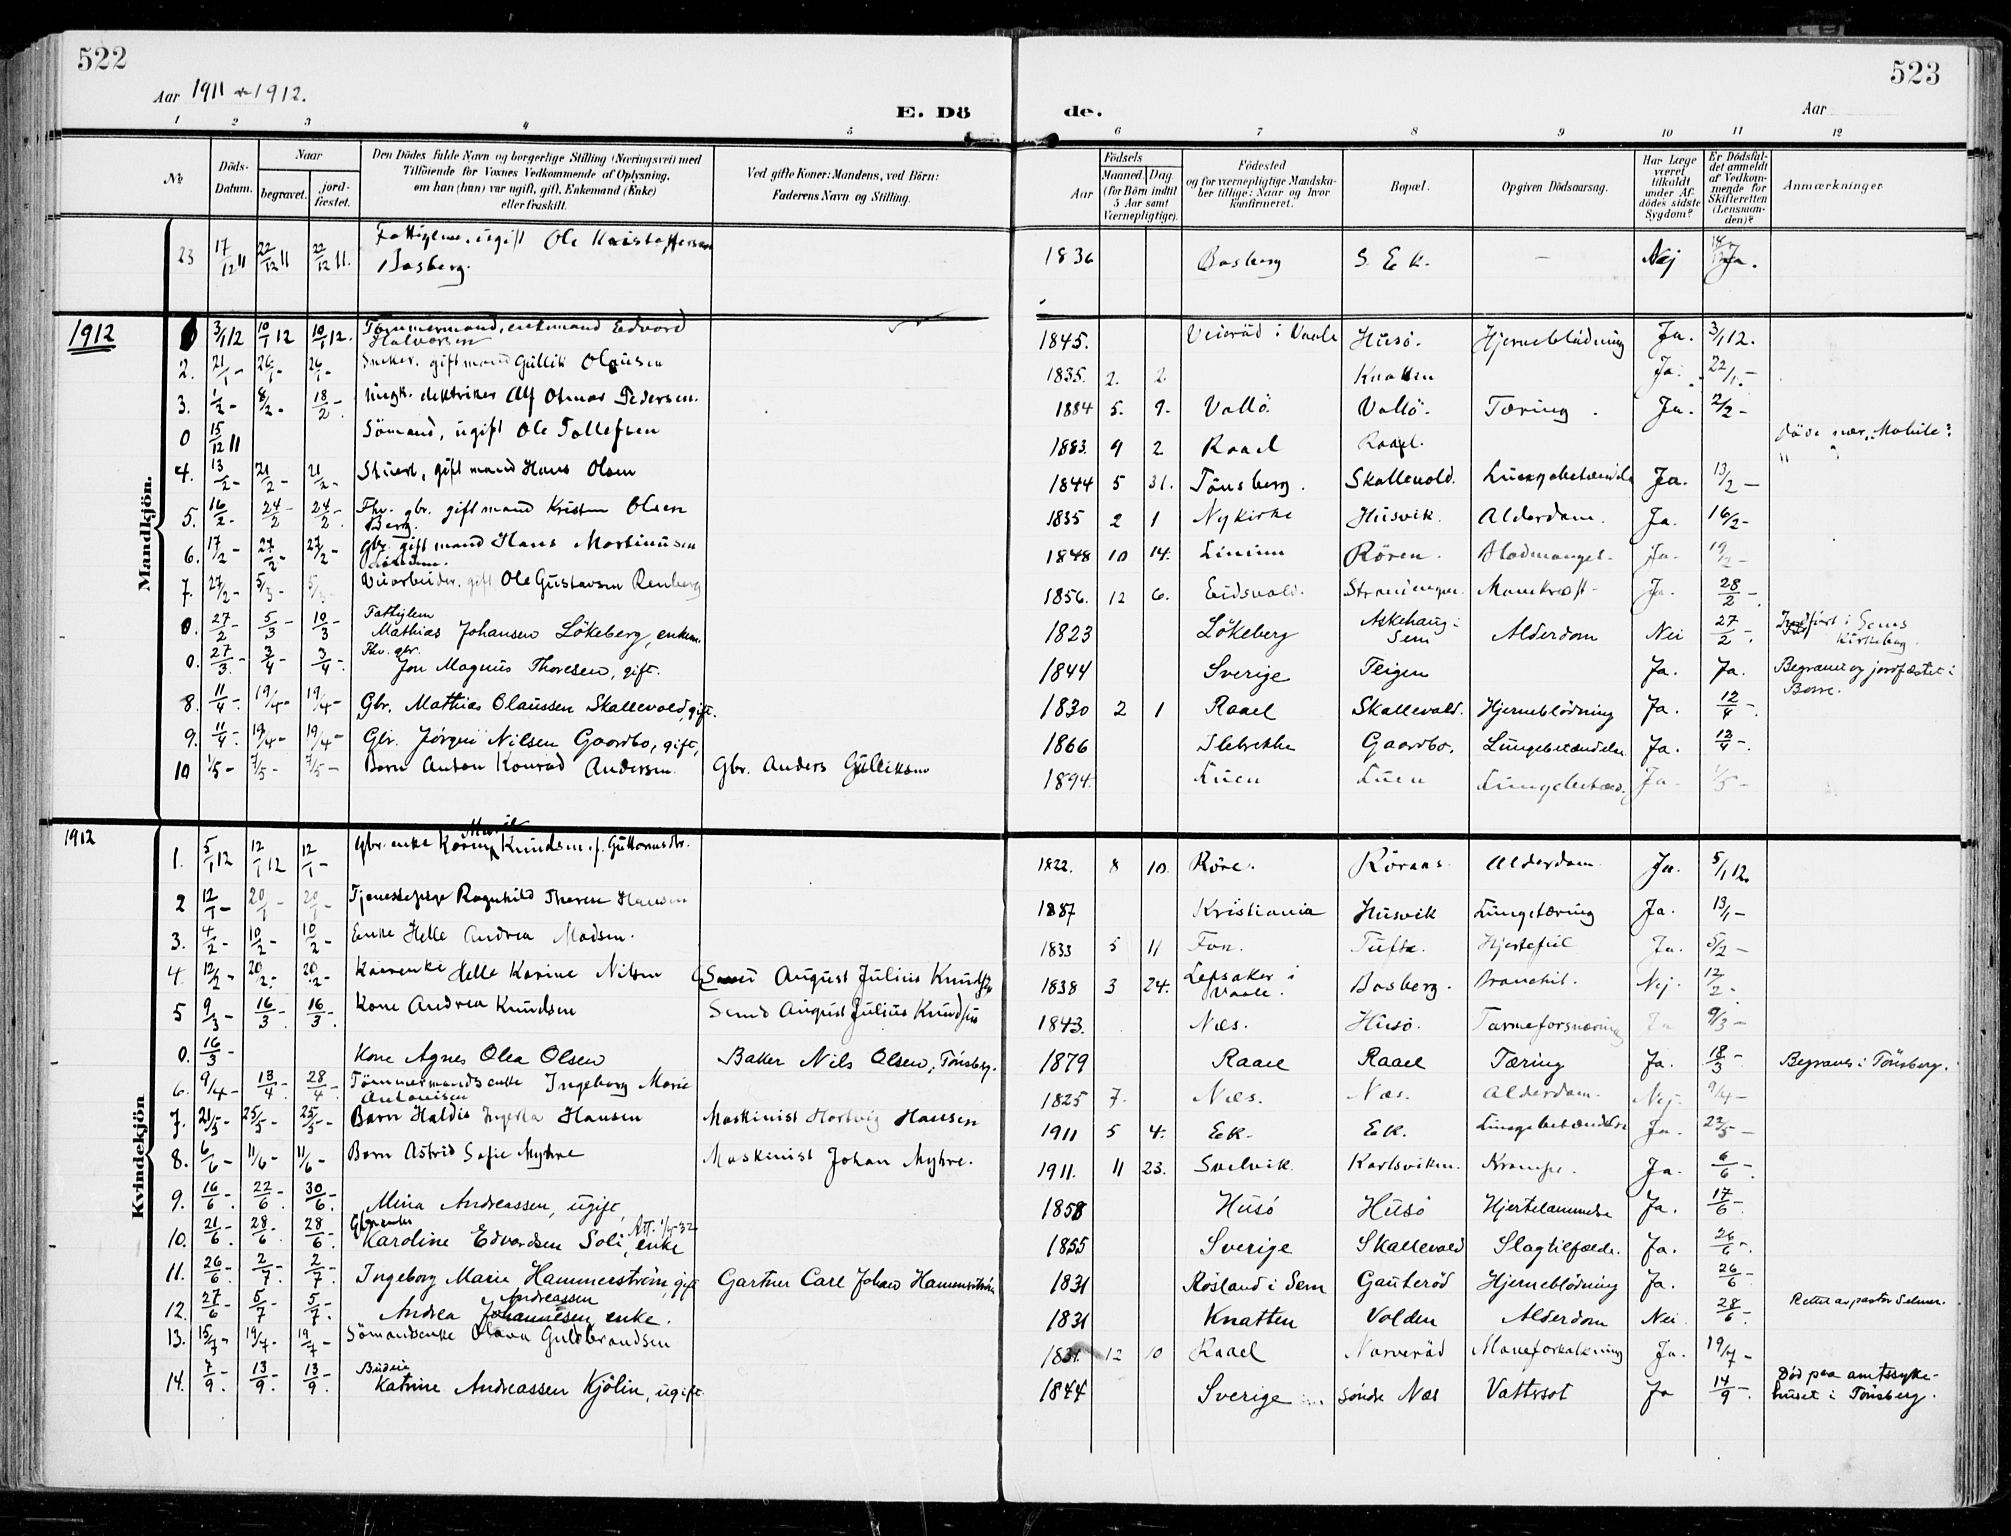 522
523
Aar 1911 & 1912.
Aar
E. Dö
de.
1 2 3 4 5 6 7 8 9 10 11 12
№
Döds-Datum.
Naar
begravet.
jord-fæstet.
Den Dödes fulde Navn og borgerlige Stilling (Næringsvei) med
Tilföiende for Voxnes Vedkommende af Oplysning,
om han (hun) var ugift, gift, Enkemand (Enke)
eller fraskilt.
Ved gifte Koner: Mandens, ved Börn:
Faderens Navn og Stilling.
Aar
Födsels
Maaned. Dag.
(for Börn indtil
5 Aar samt
Værnepligtige).
Födested
og for værnepligtige Mandska-
ber tillige: Naar og hvor
konfirmeret.
Bopæl.
Opgiven Dödsaarsag.
Har Læge
været
tilkaldt
under Af-
dödes sidste
Sygdom?
Er Dödsfal-
det anmeldt
af Vedkom-
mende for
Skifteretten
(Lensman-
den)?
Anmærkninger
Mandkjön.
23 17/12 11 22/12 11 22/12 11. Fattiglem, ugift Ole Kristoffersen Basberg. 1836 Basberg S. Ek. — Nej Ja.
1912
3/1 12 10/1 12 10/1 12. Tömmermand, enkemand Edvard Halvorsen 1845. i Vaale Husö. Hjerneblödning Ja. 3/1 12.
2. 21/1 - 26/1 - 26/1 - giftmand Gullik Olausen 1835. 2. 2. Knatten Ja. 22/1 -
3. 1/2 - 8/2 - 18/2 - Ungk. elektriker Alf Otmar Pedersen. 1884 5. 9. Vallö. Vallö. Tæring. Ja. 2/2 -
0 15/12 11 Sömand, ugift Ole Tollefsen 1883. 9 2 Raael Raael. Döde nær „Mobile"
4. 13/2 - 21/2 - 21/2 - Stuert, gift mand Hans Olsen 1844 5 31. Tönsberg. Skallevold. Lungebetændelse Ja. 13/2 —
5. 16/2 - 24/2 - 24/2 - Fhv. gbr. gift mand Kristen Olsen Berg. 1835 2 1 Nykirke Husvik. Alderdom. Ja. 16/2 -
6. 17/2 - 27/2 - 27/2 - Gbr. gift mand Hans Martinusen 1848 10 14. Linum Rören. Blodmangel. Ja. 19/2 -
7. 27/2 - 5/3 - 5/3 - Veiarbeider. gift Ole Gustavsen Renberg 1856. 12 6. Eidsvold. Mavekræft - Ja. 28/2 -
0. 27/2 - 5/3 - 10/3 - Fattiglem Mathias Johansen Lökeberg, enkem. 1823 Lökeberg Askehaug i Sem Alderdom Nei 27/2 - Jordfæst i Sems Kirkebog.
0. 27/3 - 3/4 - 3/4 - Fhv. gbr. Jon Magnus Thoresen, gift. 1844 Sverige Teigen Ja. Ja. Begravet og jordfæstet i Borre.
8. 11/4 - 19/4 - 19/4 - Gbr. Mathias Olaussen Skallevold, gift. 1830 2 1 Raael Skallevold. Hjerneblödning Ja. 12/4 -
9. 11/4 - 19/4 - 19/4 - Gbr. Jörgen Nilsen Gaardbo, gift, 1866 Slebrekke Gaardbo. Lungebetændelse. Ja. 12/4 -
10 1/5 - 7/5 - 7/5 - Barn Anton Konrad Andersen. Gbr. Anders Gulliksen 1894. Luen Luen Lungebetænd. Ja. 1/5 -
1912
Kvindekjön
1. 5/1 12 12/1 12 12/1 - Gbr. enke Karen Marie Knudsen. f. Guttormsdtr. 1822. 8 10. Röre. Röraas Alderdom. Ja. 5/1 12.
2 12/1 - 20/1 - 20/1 - Tjenestepige Ragnhild Therese Hansen 1887 Kristiania Husvik Lungetæring Ja. 13/1 -
3. 4/2 - 10/2 - 10/2 - Enke Helle Andrea Madsen. 1833 5 11 Fon. Tufte. Hjertefeil Ja. 5/2 -
4. 12/2 - 20/2 - 20/2 - Helle Karine Nilsen August Julius Knudsen 1838 3 24. Lefsaker i Vaale. Basberg. Bronchit. Nej. 12/2 -
5 9/3 - 16/3 - 16/3 - Kone Andrea Knudsen August Julius Knudsen 1843. Næs. Husö. Tarmeforsnævring Ja 9/3 -
0. 16/3 - Kone Agnes Olea Olsen Baker Nils Olsen, Tönsberg. 1879 Raael Raael Tæring Ja. 18/3 - Begraves i Tönsberg.
6. 9/4 - 13/4 - 28/4 - Tömmermandsenke Ingeborg Marie Antonisen 1825 7. Næs. Næs. Alderdom. Nej. 9/4 -
7. 21/5 - 25/5 - 25/5 - Barn Haldis Hansen Maskinist Hartvig Hansen 1911 5 4. Ek. Ek. Lungebetændelse Ja. 22/5 -
8. 6/6 - 11/6 - 11/6 - Barn Astrid Sofie Myhre Maskinist Johan Myhre. 1911. 11 23. Svelvik. Karlsviken. Krampe. Ja. 6/6 -
9. 16/6 - 22/6 - 30/6 - Mina Andreassen, ugift, 1858 Husö Husö Hjertelammelse Ja. 17/6 -
10. 21/6 - 28/6 - 28/6 - Gbr.enke Karoline Edvardsen Soli, enke 1855 Sverige Skallevold Slagtilfælde. Ja. 26/6 -
11. 26/6 - 2/7 - 2/7 - Ingeborg Marie Hammerström, gift Gartner Carl Johan Hammerström 1831 Rösland i Sem Gauteröd Hjerneblödning Ja. 26/6 -
12. 27/6 - 5/7 - 5/7 - Andrea Johannesen Andreassen enke. 1831 Knatten Volden Alderdom Nei 28/6 - Rettet av pastor Selmer.
13. 15/7 - 19/7 - 19/7 - Sömandsenke Olava Guldbrandsen 1831. 12 10 Raael Narveröd Ja. 19/7 -
14. 7/9 - 13/9 - 13/9 - Budeie Katrine Andreassen Kjölin, ugift 1844 Sverige Söndre Næs Vattersot Ja 14/9 - Död paa amtssyke-huset i Tönsberg.